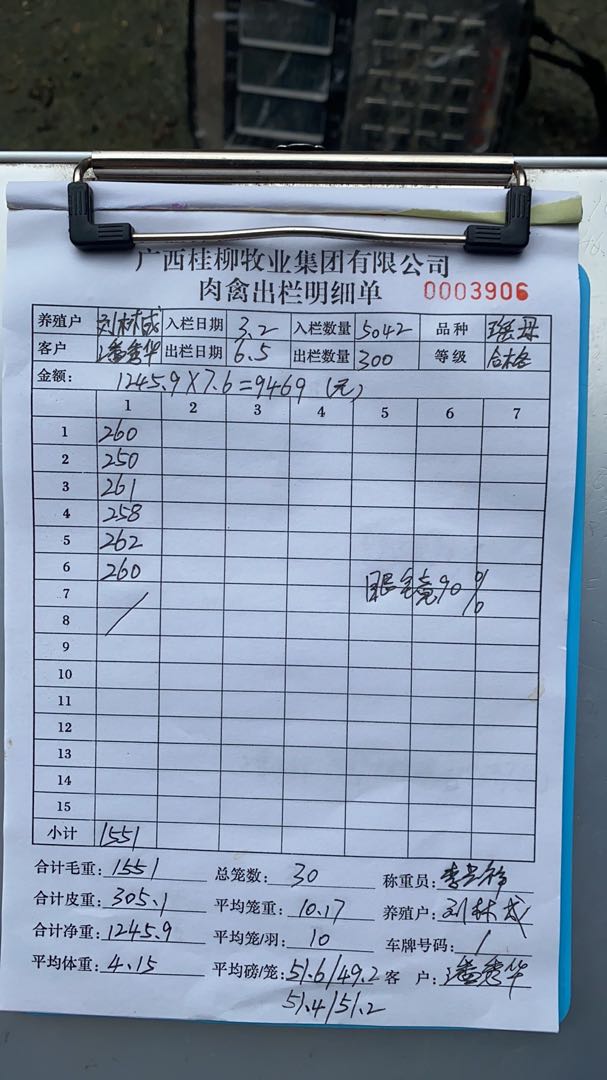 广西桂柳牧业集团有限公司
肉禽出栏明细单 0003906
养殖户 刘林成 入栏日期 3.2 入栏数量 5042 品种 瑶丹
客户 潘秀华 出栏日期 6.5 出栏数量 300 等级 合格
金额: 1245.9×7.6=9469(元)
1 2 3 4 5 6 7
1 260
2 250
3 261
4 258
5 262
6 260
眼毛亮90%
7 /
8
9
10
11
12
13
14
15
小计 1551
合计毛重: 1551 总笼数: 30 称重员:
合计皮重: 305.1 平均笼重: 10.17 养殖户: 刘林成
合计净重: 1245.9 平均笼/羽: 10 车牌号码: /
平均体重: 4.15 平均磅/笼: 51.6/49.2 客 户: 潘秀华
51.4/51.2